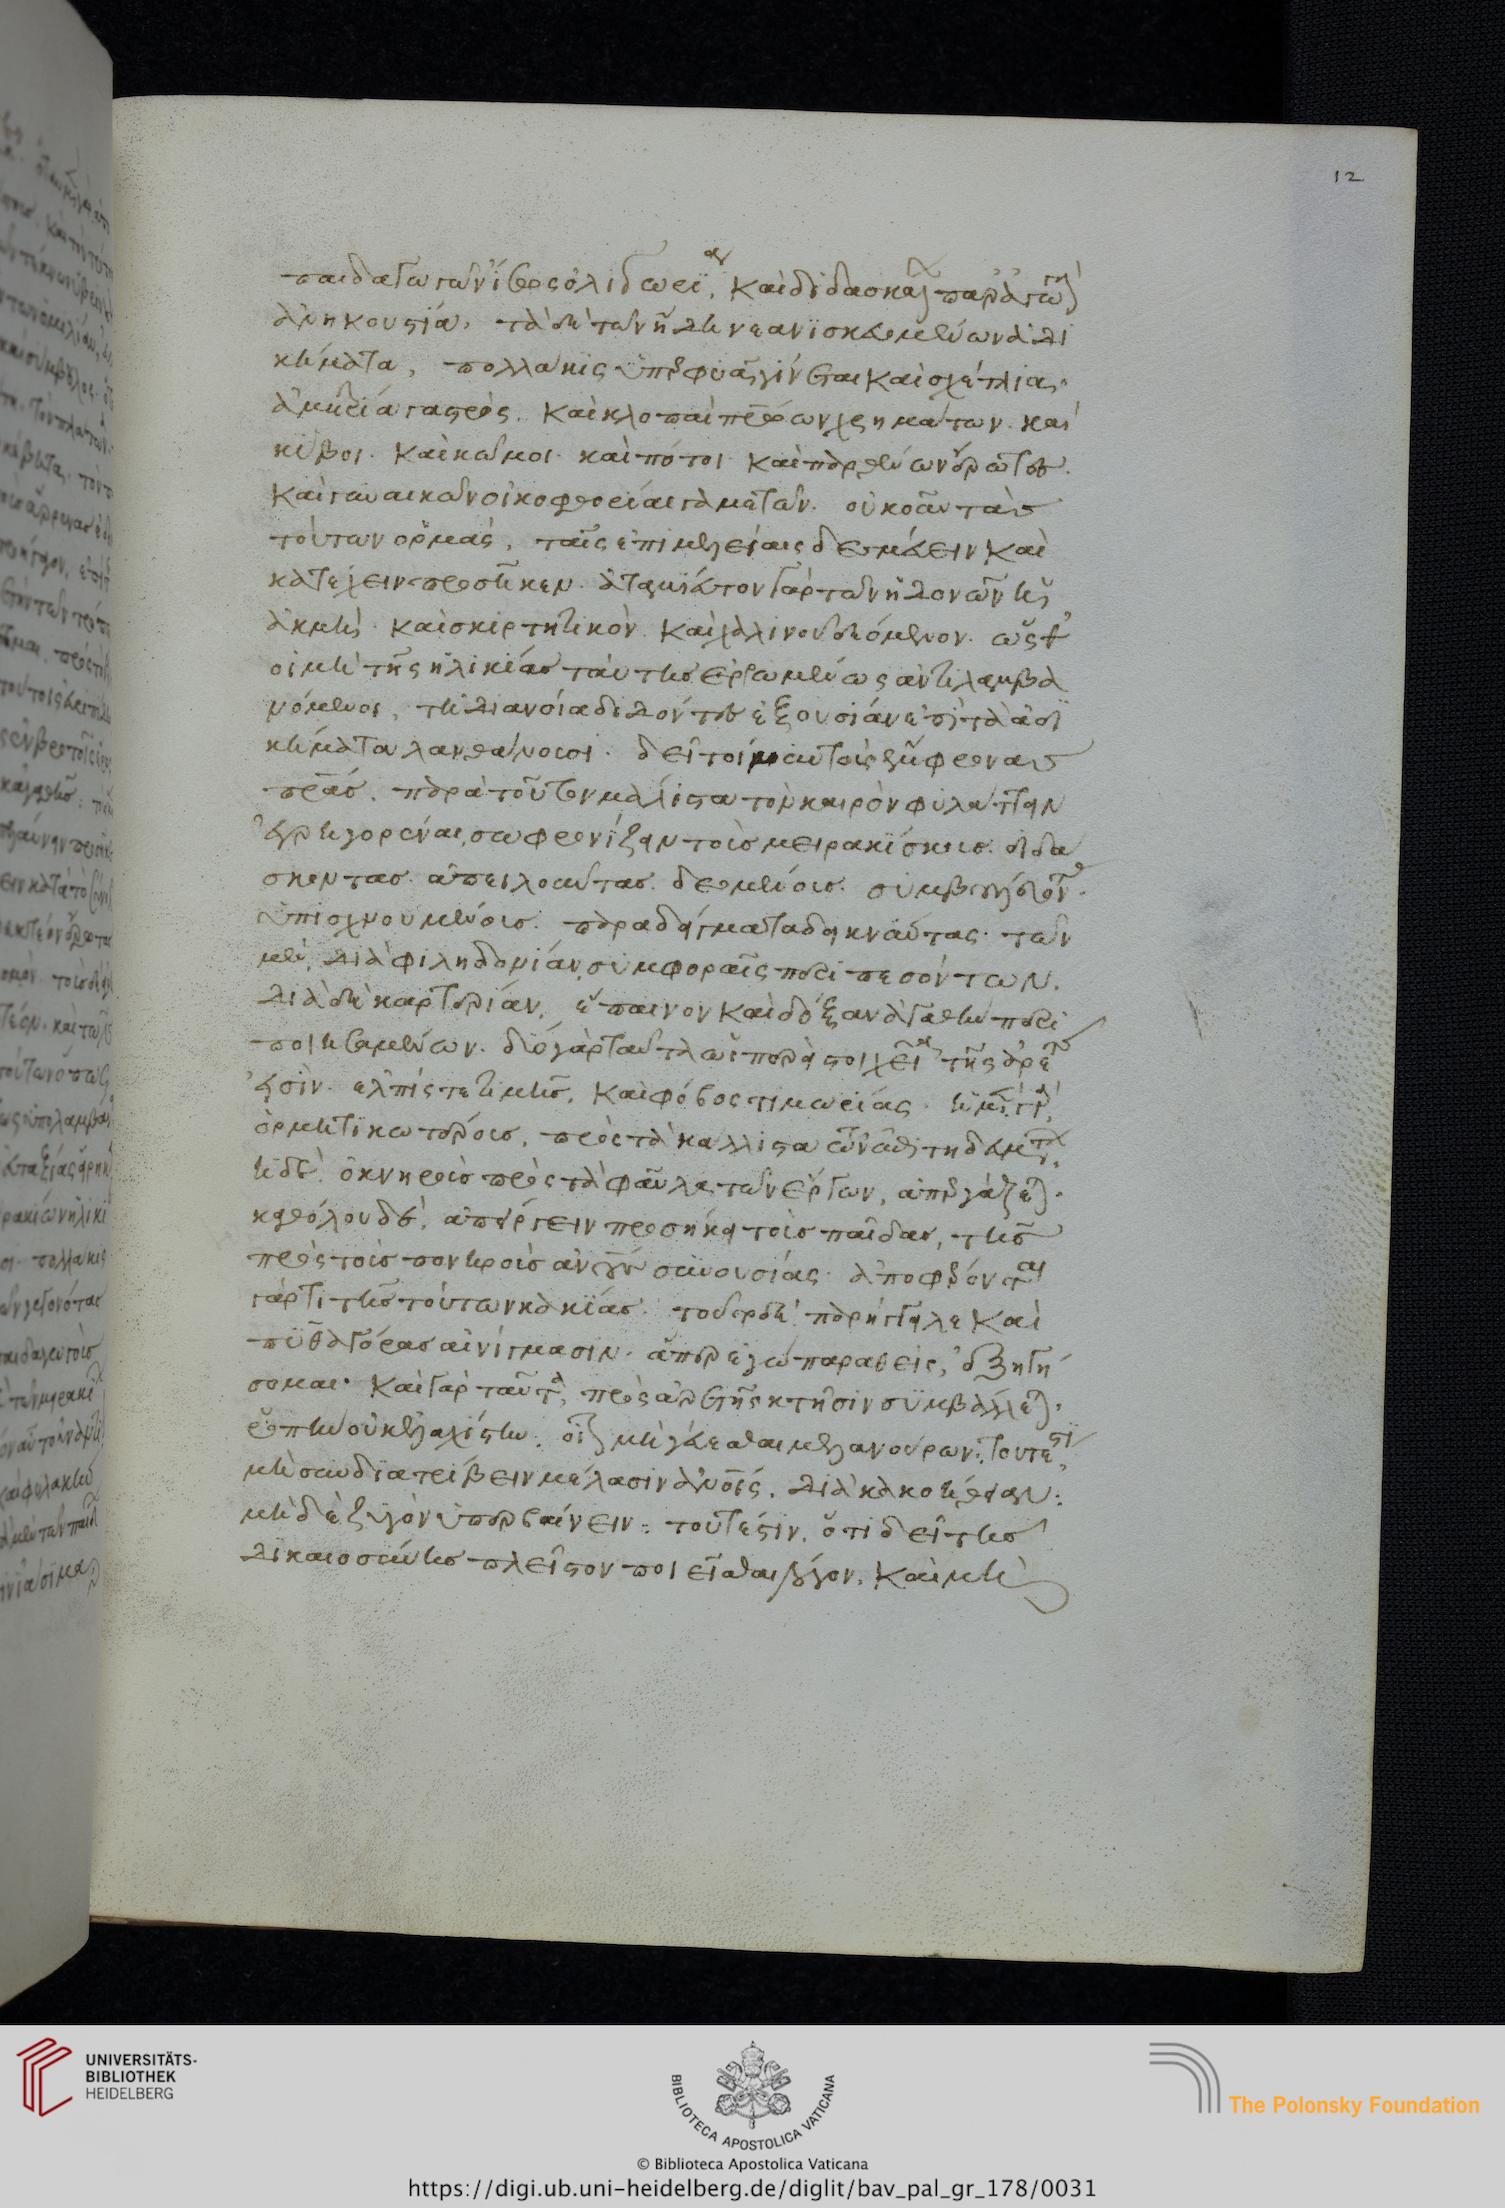 παιδαγωγῶν ἴσως ὀλιγωρίαι. καὶ διδασκάλων παραγωγαὶ
ἀνηκουστίαι. τὰ δὲ τῶν ἤδη νεανισκευομένων ἀδι
κήματα, πολλάκις ὑπερφυᾶ γίνεται καὶ σχέτλια.
ἀμετρία γαστρός. καὶ κλοπαὶ πατρῴων χρημάτων. καὶ
κύβοι. καὶ κῶμοι. καὶ πότοι. καὶ παρθένων ἔρωτες.
καὶ γυναικῶν οἰκοφθορίαι γαμετῶν. οὐκοῦν τὰς
τούτων ὁρμὰς, ταῖς ἐπιμελείαις δεσμεύειν καὶ
κατέχειν προσῆκεν. ἀταμίευτον γὰρ τῶν ἡδονῶν ἡ
ἀκμὴ. καὶ σκιρτητικὸν. καὶ χαλινοῦ δεόμενον. ὥστε
οἱ μὴ τῆς ἡλικίας ταύτης ἐρρωμένως ἀντιλαμβα
νόμενοι, τῇ διανοίᾳ διδόντες ἐξουσίαν ἐπὶ τὰ ἀδι
κήματα λανθάνουσι. δεῖ τοίνυν τοὺς ἔμφρονας
πατέρας. παρὰ τοῦτον μάλιστα τὸν καιρὸν φυλάττειν
ἐγρηγορέναι, σωφρονίζειν τοὺς μειρακίσκους. διδά
σκοντας. ἀπειλοῦντας. δεομένους. συμβουλεύοντας.
ὑπισχνουμένους. παραδείγματα δεικνύντας. τῶν
μὲν, διὰ φιληδονίαν, συμφοραῖς περιπεσόντων.
διὰ δὲ καρτερίαν, ἔπαινον καὶ δόξαν ἀγαθὴν περι
ποιησαμένων. δύο γὰρ ταῦτα ὡσπερεὶ στοιχεῖα τῆς ἀρετῆς
εἰσίν. ἐλπίς τε τιμῆς, καὶ φόβος τιμωρίας. ἡ μὲν γὰρ,
ὁρμητικωτέρους, πρὸς τὰ κάλλιστα τῶν ἐπιτηδευμάτων,
ἡ δὲ, ὀκνηροὺς πρὸς τὰ φαῦλα τῶν ἔργων, ἀπεργάζεται.
καθόλου δὲ, ἀπείργειν προσήκει τοὺς παῖδας, τῆς
πρὸς τοὺς πονηροὺς ἀνθρώπους συνουσίας. ἀποφέρονται
γάρ τι τῆς τούτων κακίας. τοῦτο δὲ, παρήγγειλε καὶ
πυθαγόρας αἰνίγμασιν. ἅπερ ἐγὼ παραθεὶς, ἐξηγή
σομαι. καὶ γὰρ ταῦτα, πρὸς ἀρετῆς κτῆσιν συμβάλλεται
ῥοπὴν οὐκ ἐλαχίστην. οἷον μὴ γεύεσθαι μελανούρων: τουτέστι,
μὴ συνδιατρίβειν μέλασιν ἀνθρώποις, διὰ κακοήθειαν:
μὴ δὲ ζυγὸν ὑπερβαίνειν: τουτέστιν, ὅτι δεῖ τῆς
δικαιοσύνης πλεῖστον ποιεῖσθαι λόγον, καὶ μὴ
12
UNIVERSITÄTS-
BIBLIOTHEK
HEIDELBERG
BIBLIOTECA APOSTOLICA VATICANA
© Biblioteca Apostolica Vaticana
The Polonsky Foundation
https://digi.ub.uni-heidelberg.de/diglit/bav_pal_gr_178/0031